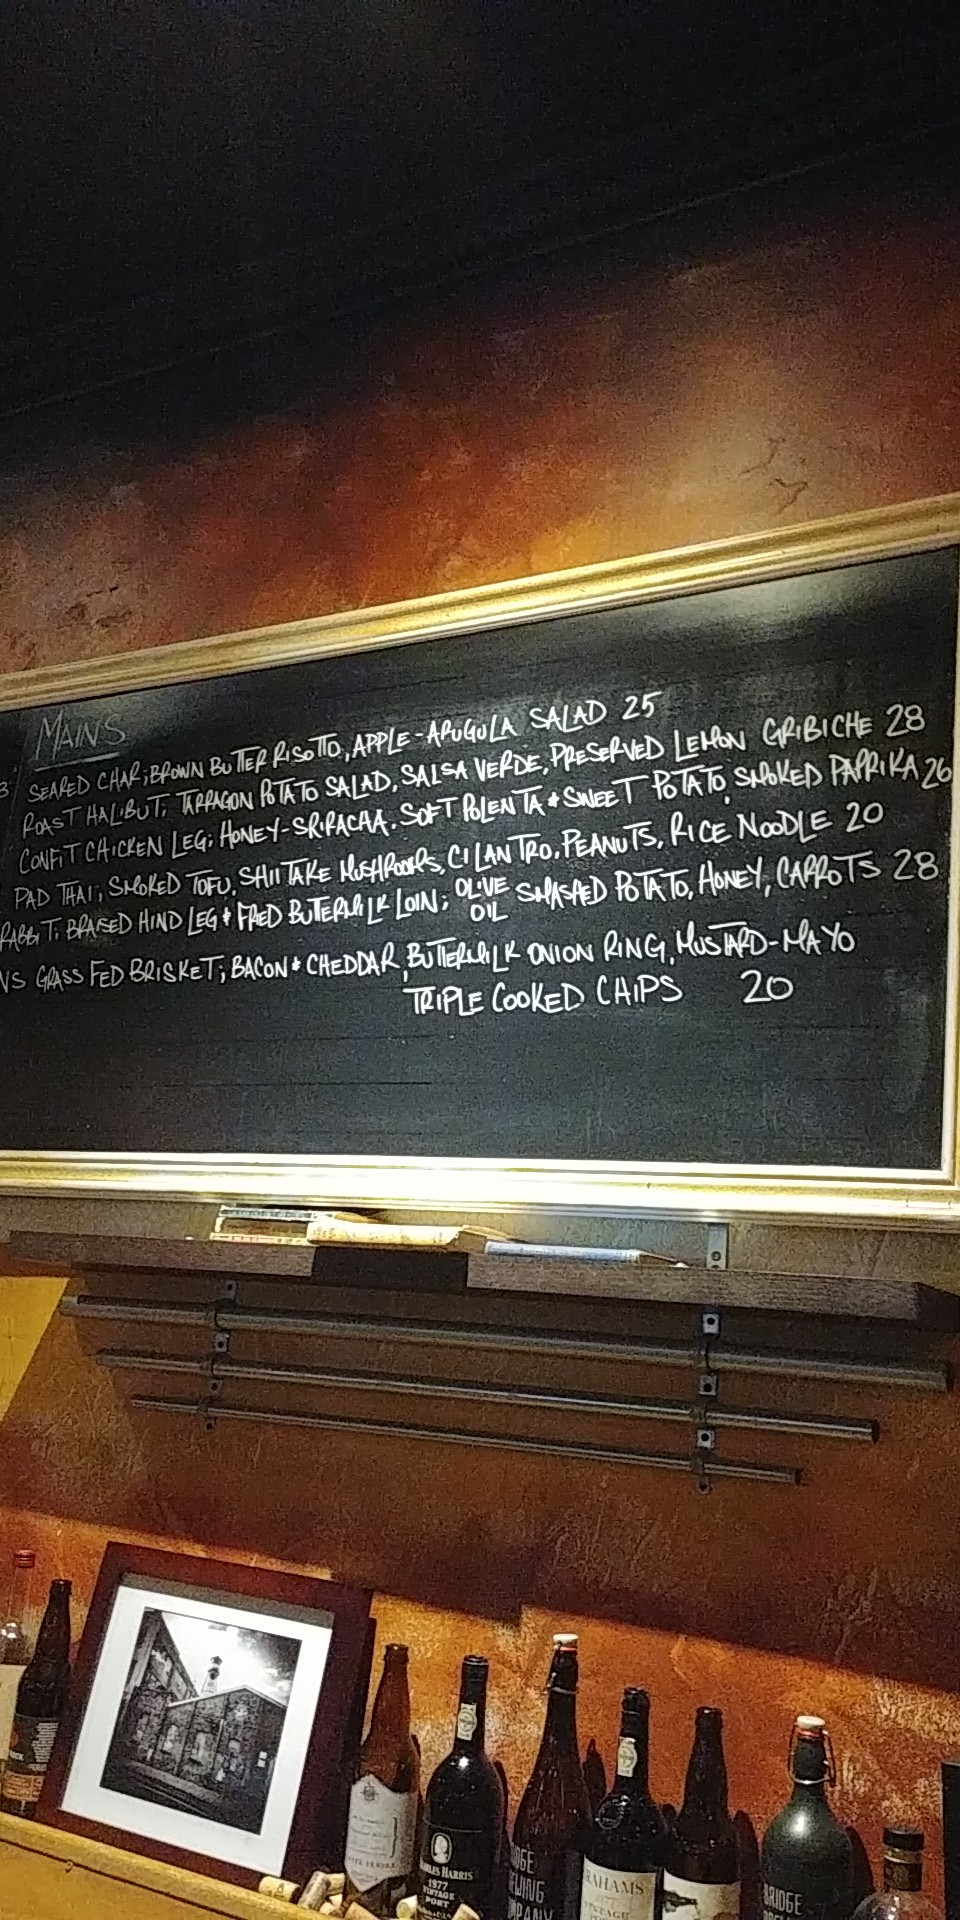 MAINS
SEARED CHAR; BROWN BUTTER RISOTTO, APPLE-ARUGULA SALAD 25
ROAST HALIBUT; TARRAGON POTATO SALAD, SALSA VERDE, PRESERVED LEMON GRIBICHE 28
CONFIT CHICKEN LEG; HONEY-SRIRACHA, SOFT POLENTA & SWEET POTATO, SMOKED PAPRIKA 26
PAD THAI; SMOKED TOFU, SHIITAKE MUSHROOMS, CILANTRO, PEANUTS, RICE NOODLE 20
RABBIT; BRAISED HIND LEG & FRIED BUTTERMILK LOIN; OLIVE OIL SMASHED POTATO, HONEY, CARROTS 28
NS GRASS FED BRISKET; BACON & CHEDDAR, BUTTERMILK ONION RING, MUSTARD-MAYO
TRIPLE COOKED CHIPS 20
HARRIS
1977
VINTAGE
PORT
IDGE
EWING
MPANY
RAHAMS
VINTAGE
BRIDGE